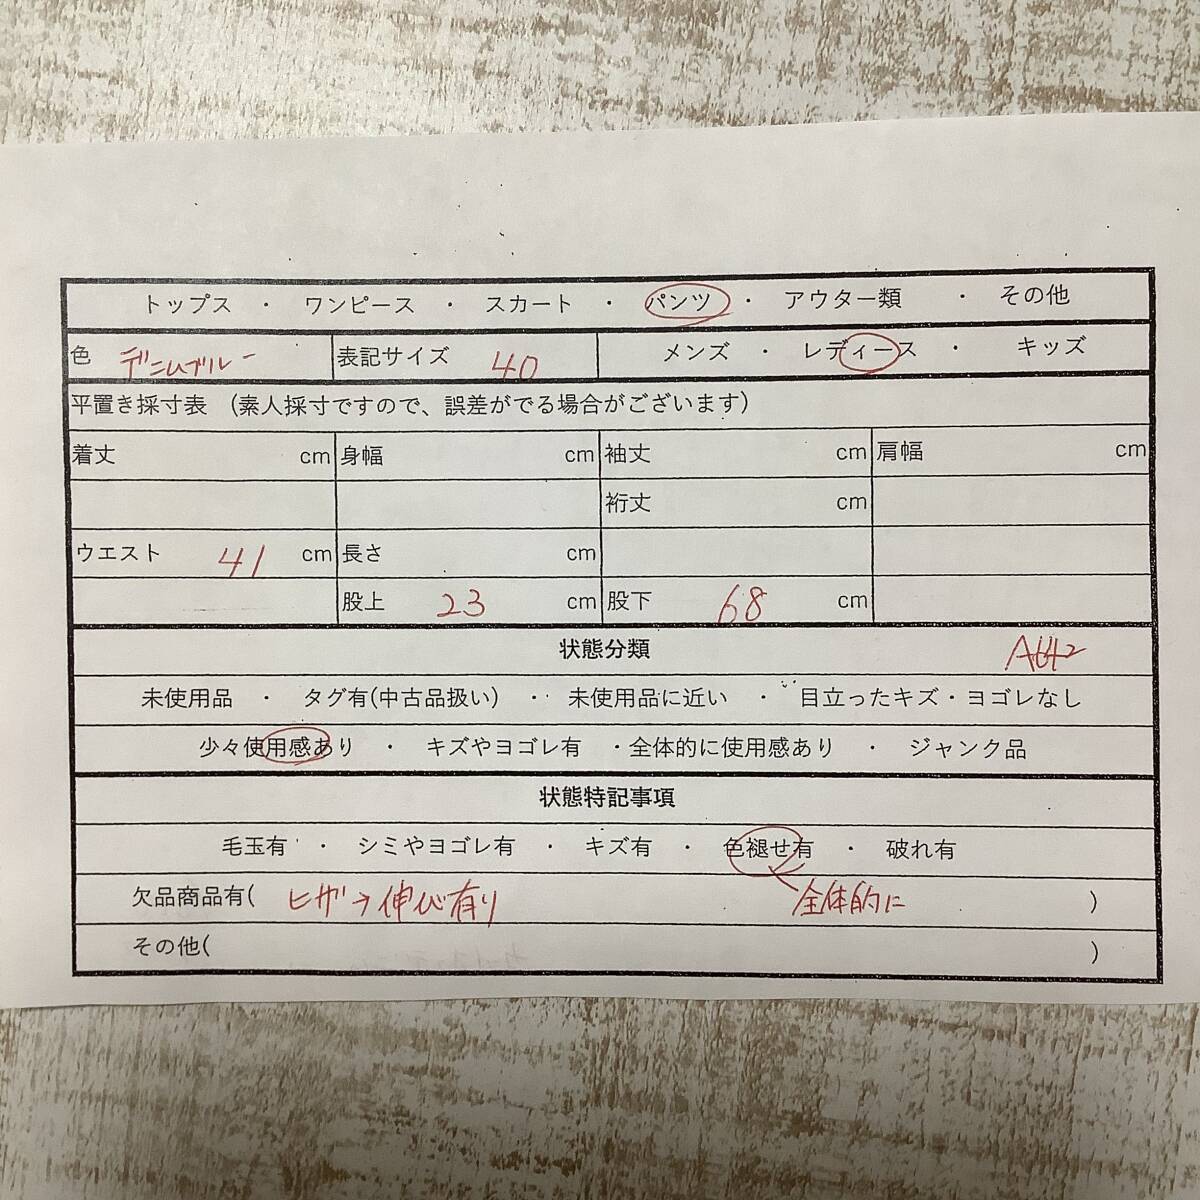 トップス ・ ワンピース ・ スカート ・ パンツ ・ アウター類 ・ その他
色 デニムブルー 表記サイズ 40 メンズ ・ レディース ・ キッズ
平置き採寸表 (素人採寸ですので、誤差がでる場合がございます)
着丈 cm 身幅 cm 袖丈 cm 肩幅 cm
裄丈 cm
ウエスト 41 cm 長さ cm
股上 23 cm 股下 68 cm
状態分類
未使用品 ・ タグ有(中古品扱い) ・ 未使用品に近い ・ 目立ったキズ・ヨゴレなし
少々使用感あり ・ キズやヨゴレ有 ・全体的に使用感あり ・ ジャンク品
状態特記事項
毛玉有 ・ シミやヨゴレ有 ・ キズ有 ・ 色褪せ有 ・ 破れ有
欠品商品有( ヒザ→伸び有り 全体的に )
その他( )